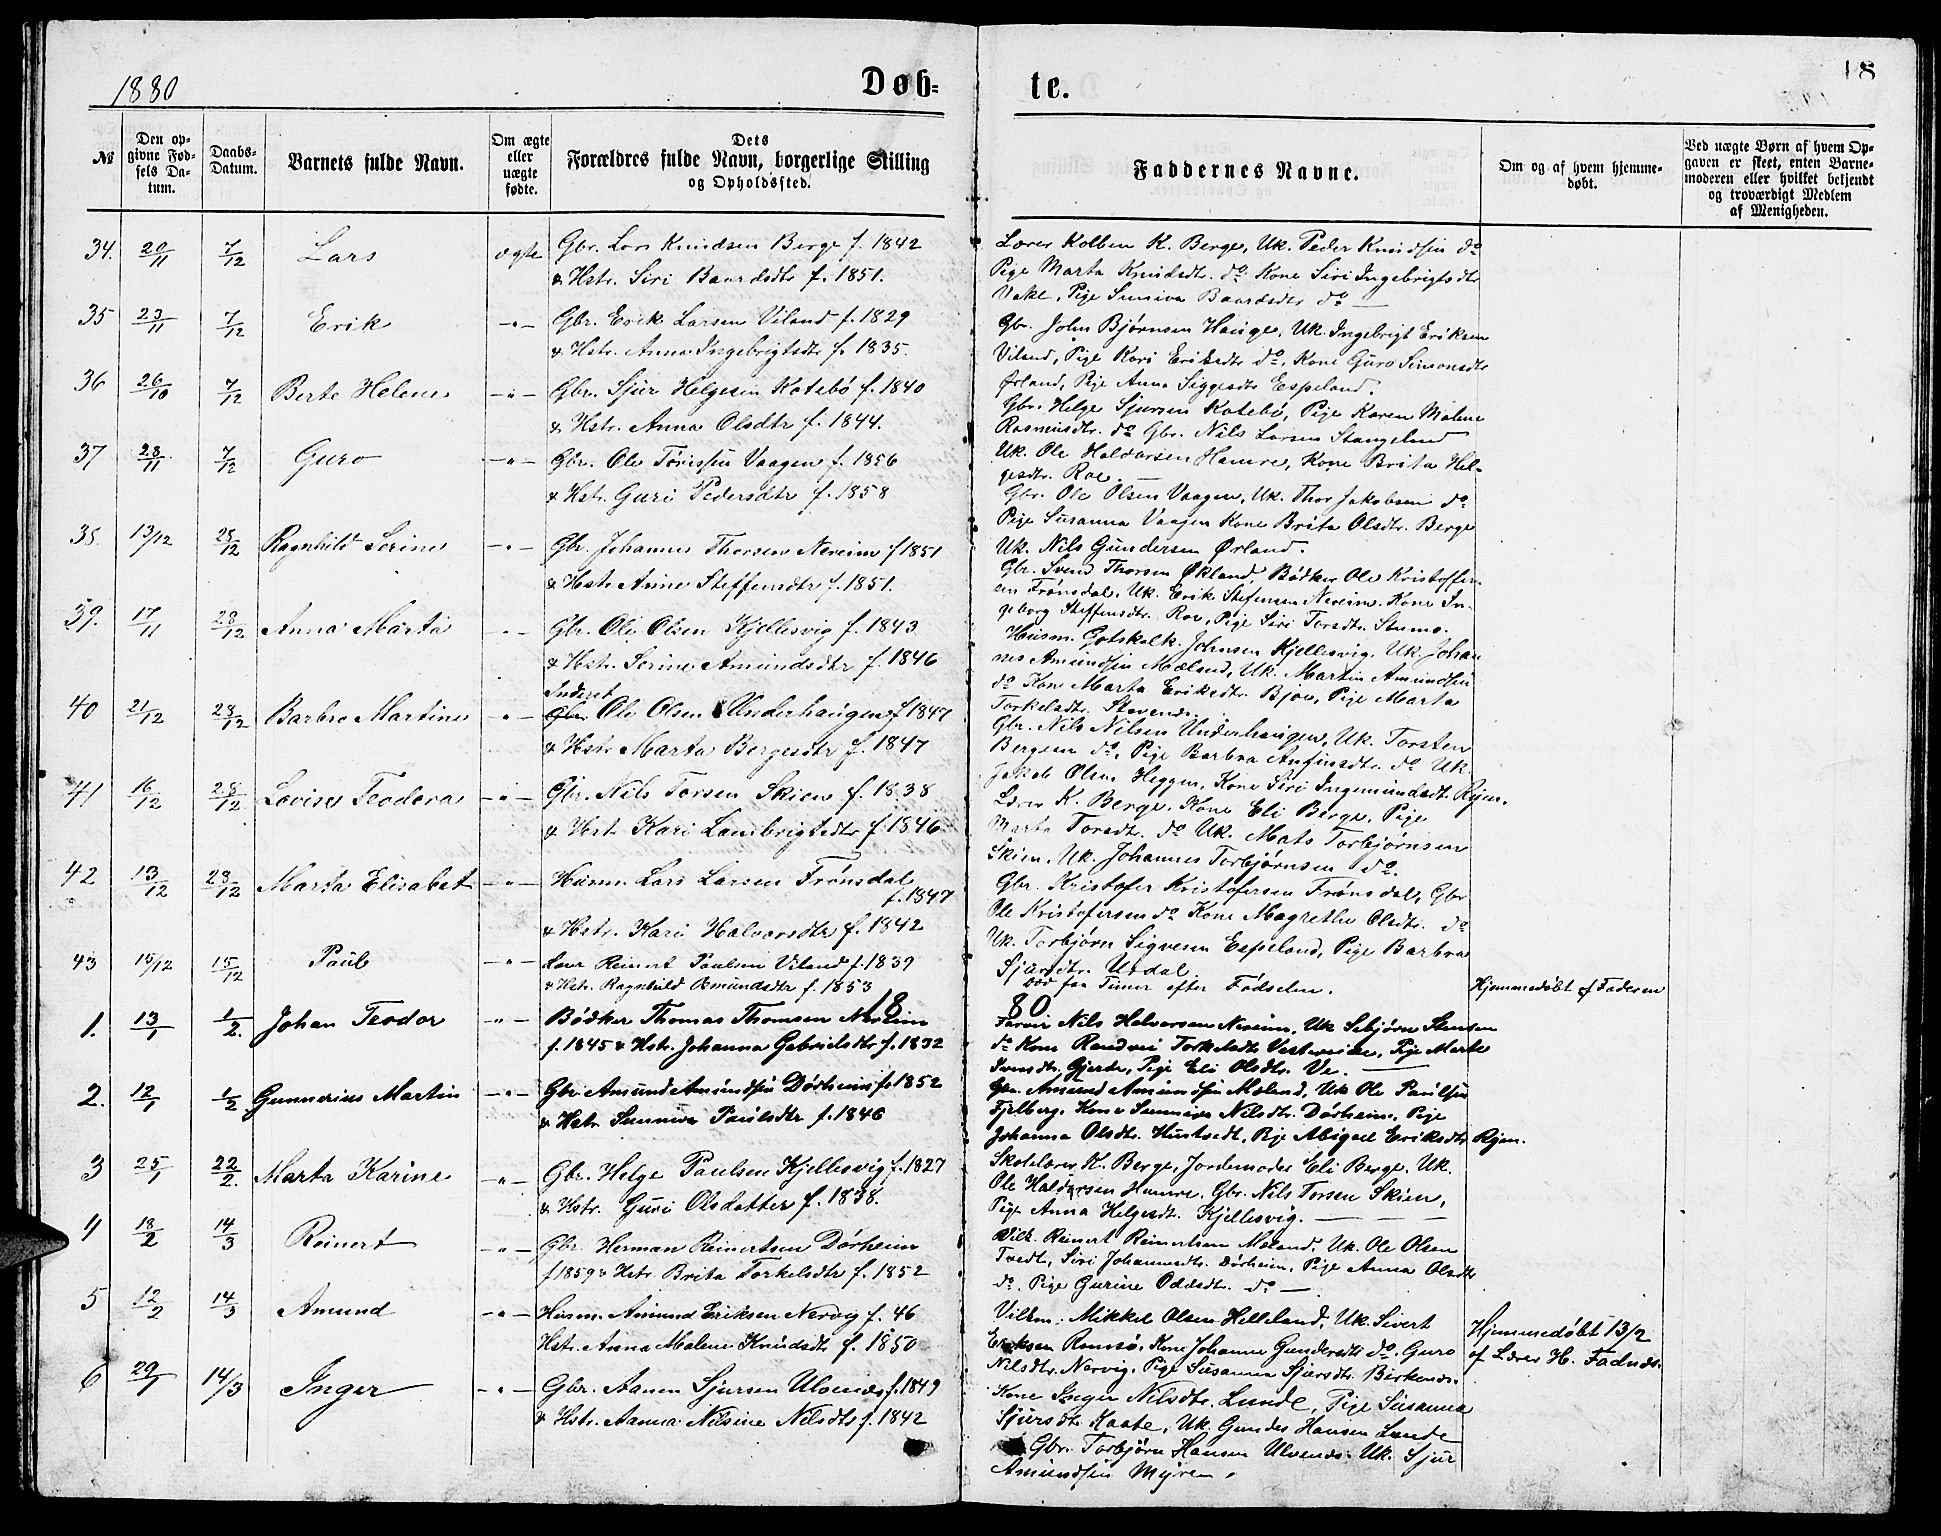 1880
Døb-
te.
18
№
Den opgivne Fødsels Datum.
Daabs-Datum.
Barnets fulde Navn.
Om ægte eller uægte fødte.
Dets Forældres fulde Navn, borgerlige Stilling og Opholdssted.
Faddernes Navne.
Om og af hvem hjemmedøbt.
Ved uægte Børn af hvem Opgaven er skeet, enten Barnemoderen eller hvilket bekjendt og troværdigt Medlem af Menigheden.
34. 20/11 7/12 Lars ægte Gbr. Lars Knudsen Berge f. 1842
& Hstr. Siri Baardsdtr f. 1851.
Lærer Kolben K. Berge, Uk. Peder Knudsen do
Pige Marta Knudsdt. do Kone Siri Ingebrigtsdtr
Vake, Pige Sunniva Baardsdtr do —
35 23/11 7/12 Erik —"— Gbr. Erik Larsen Viland f. 1829
& Hstr. Anna Ingebrigtsdtr f. 1835.
Gbr. John Bjørnsen Hauge, Uk. Ingebrigt Eriksen
Viland, Pige Kari Eriksdtr do, Kone Guro Simonsdtr
Ørland, Pige Anna Siggesdtr Espeland.
36 26/10 7/12 Berte Helene —"— Gbr. Sjur Helgesen Kotebø f. 1840
& Hstr. Anna Olsdtr f. 1844.
Gbr. Helge Sjursen Kotebø, Pige Karen Malene
Rasmusdtr. do Gbr. Nils Larsen Stangeland
Uk. Ole Haldorsen Hamre, Kone Brita Hel-
gesdtr. Roe. —
37 28/11 7/12 Guro —"— Gbr. Ole Tørissen Vaagen f. 1856
& Hstr. Guri Pedersdtr f. 1858
Gbr. Ole Olsen Vaagen, Uk. Thor Jakobsen do
Pige Susanna Vaagen Kone Brita Olsdtr. Berge
Uk. Nils Gundersen Ørland.
38. 13/12 28/12 Ragnhild Serine —"— Gbr. Johannes Thorsen Nereim f 1851
& Hstr. Anne Steffensdtr f. 1851.
Gbr. Svend Thorsen Økland, Bødker Ole Kristoffer-
sen Frønsdal, Uk. Erik Stefensen Nereim. Kone In-
geborg Steffensdtr. Roe, Pige Siri Torsdtr. Stumo.
39. 17/11 28/12 Anna Marta —"— Gbr. Ole Olsen Kjellesvig f. 1843
& Hstr. Serine Amundsdtr f. 1846
Husm. Gotskalk Johnsen Kjellesvig, Uk. Johan
nes Amundsen Mæland, Uk. Martin Amundsen
do Kone Marta Eriksdtr. Bjoe, Pige Marta
Torkelsdtr.
40 21/12 28/12 Barbro Martine —"— Inderst
Gbr. Ole Olsen Underhaugen f 1847
& Hstr. Marta Bergesdtr f. 1847
Gbr. Nils Nilsen Underhaugen, Uk. Torsten
Bergsen do, Pige Barbra Anfinsdtr. do Uk
Jakob Olsen Heggen, Kone Siri Ingemundsdt. Rijen.
41 16/12 28/12 Lovise Teodora —"— Gbr. Nils Torsen Skien f. 1838
& Hstr. Kari Lambrigtsdtr f. 1846
Lærer K. Berge. Kone Eli Berge, Pige
Marta Torsdtr. do Uk. Mats Torbjørnsen
Skien. Uk. Johannes Torbjørnsen do.
42 13/12 28/12 Marta Elisabet —"— Husm. Lars Larsen Frønsdal
f. 1847
& Hstr. Kari Halvorsdtr f. 1842
Gbr. Kristofer Kristofersen Frønsdal, Gbr
Ole Kristofersen do Kone Magrethe Olsdtr. do
Uk. Torbjørn Sigvesen Espeland, Pige Barbra
Sjursdtr. Urdal.
43 15/12 15/12 Paul —"— Lær Reinert Paulsen Viland f. 1839
& Hstr. Ragnhild Osmundsdtr f. 1853
død faa Timer efter Fødselen.
Hjemmedøbt af Faderen
1880
1. 13/1 1/2. Johan Teodor —"— Bødker Thomas Thomsen Nereim
f. 1845 & Hstr. Johanna Gabrielsdtr f. 1832
Farver Nils Halvorsen Nereim, Uk Sebjørn Stensen
do Kone Randvei Torkelsdtr Vestvike, Pige Marta
Svendtr. Gjerde, Pige Eli Olsdtr. Ve. —
2. 12/1 1/2 Gunnerius Martin —"— Gbr Amund Amundsen Dørheim f 1852
& Hstr. Sunniva Paulsdtr f. 1846
Gbr. Amund Amundsen Mæland, Uk Ole Paulsen
Fjelberg, Kone Sunniva Nilsdtr. Dørheim, Pige
Johanna Olsdtr. Hustvedt, Pige Abigael Eriksdtr Rijen.
3 25/1 22/2. Marta Karine —"— Gbr. Helge Paulsen Kjellesvig f. 1827
& Hstr. Guri Olsdatter f. 1838.
Skolelærer K. Berge, Jordemoder Eli Berge, Uk.
Ole Haldorsen Hamre, Gbr. Nils Torsen Skien,
Pige Anna Helgesdt. Kjellesvig. — —
4 18/2 14/3 Reinert —"— Gbr Herman Reinertsen Dørheim
f 1859 & Hstr. Brita Torkelsdtr f. 1852
Vilk. Reinert Reinertsen Mæland, Uk. Ole Olsen
Tvedt, Siri Johannesdtr. Dørheim, Pige Anna Olsdtr
do. Pige Gurine Oddsdtr. do —
5 12/2 14/3 Amund —"— Husm. Amund Eriksen Nervig f. 46
Hstr. Anna Malene Knudsdtr f. 1850
Vilkm. Mikkel Olsen Helleland, Uk. Sivert
Eriksen Romsø. Kone Johanne Gundersdtr do. Guro
Nilsdtr. Nervig, Pige Susanna Sjursdtr. Birkenes.
Hjemmedøbt 13/2
af Lærer H. Fadnæs.
6 29/1 14/3 Inger —"— Gbr. Aanen Sjursen Ulvenes f. 1849
& Hstr. Aanna Nilsine Nilsdtr f. 1842
Kone Inger Nilsdtr. Lunde, Pige Susanna
Sjursdtr Kaate, Uk. Gundes Hansen Lunde
Gbr. Torbjørn Hansen Ulvenes. Uk. Sjur
Amundsen Myren.